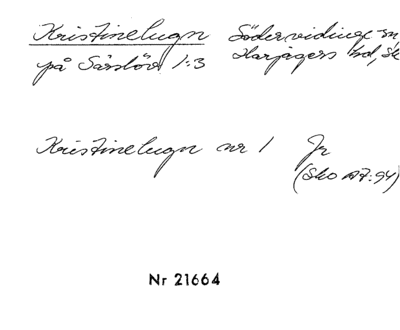 Kristinelugn Södervidinge sn
på Särslöv 1:3 Harjagers hd, Sk
Kristinelugn nr 1 Jr
(Sko A7:94)
Nr 21664